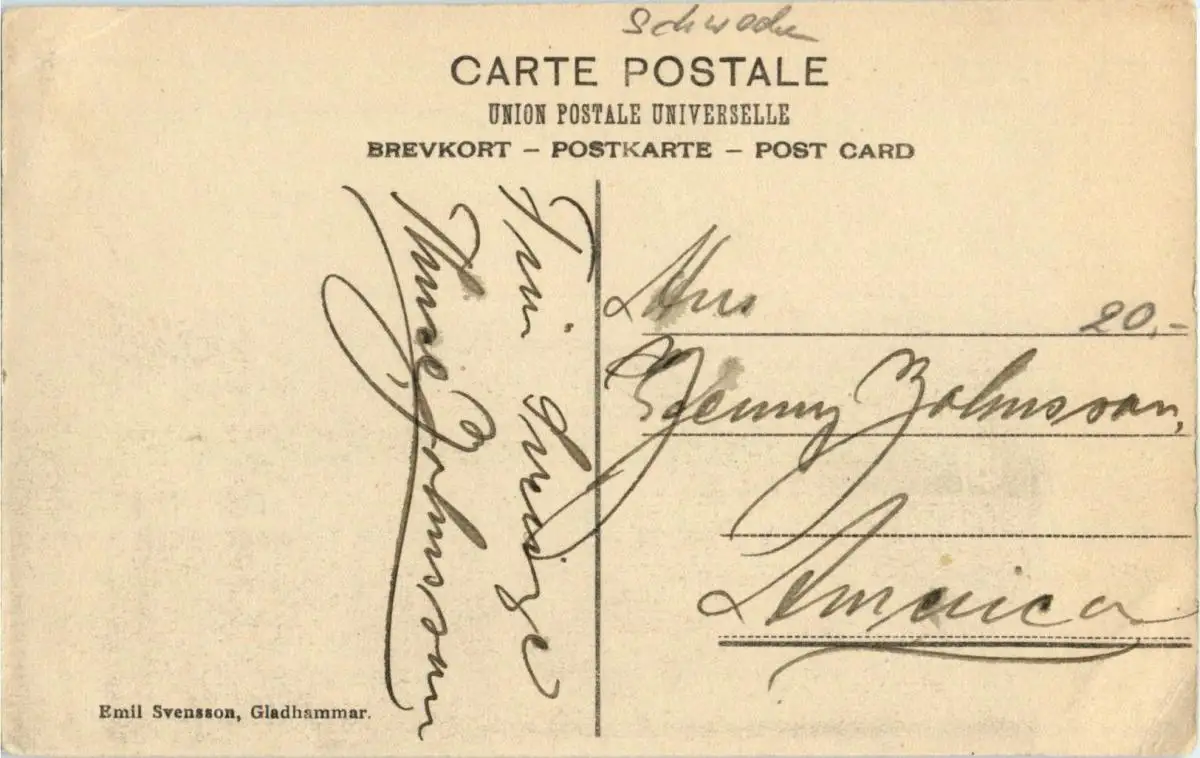 Schweden
CARTE POSTALE
UNION POSTALE UNIVERSELLE
BREVKORT – POSTKARTE – POST CARD
Från Sverige
Thure Johnsson
Mrs
20,-
Jenny Johnsson,
America
Emil Svensson, Gladhammar.